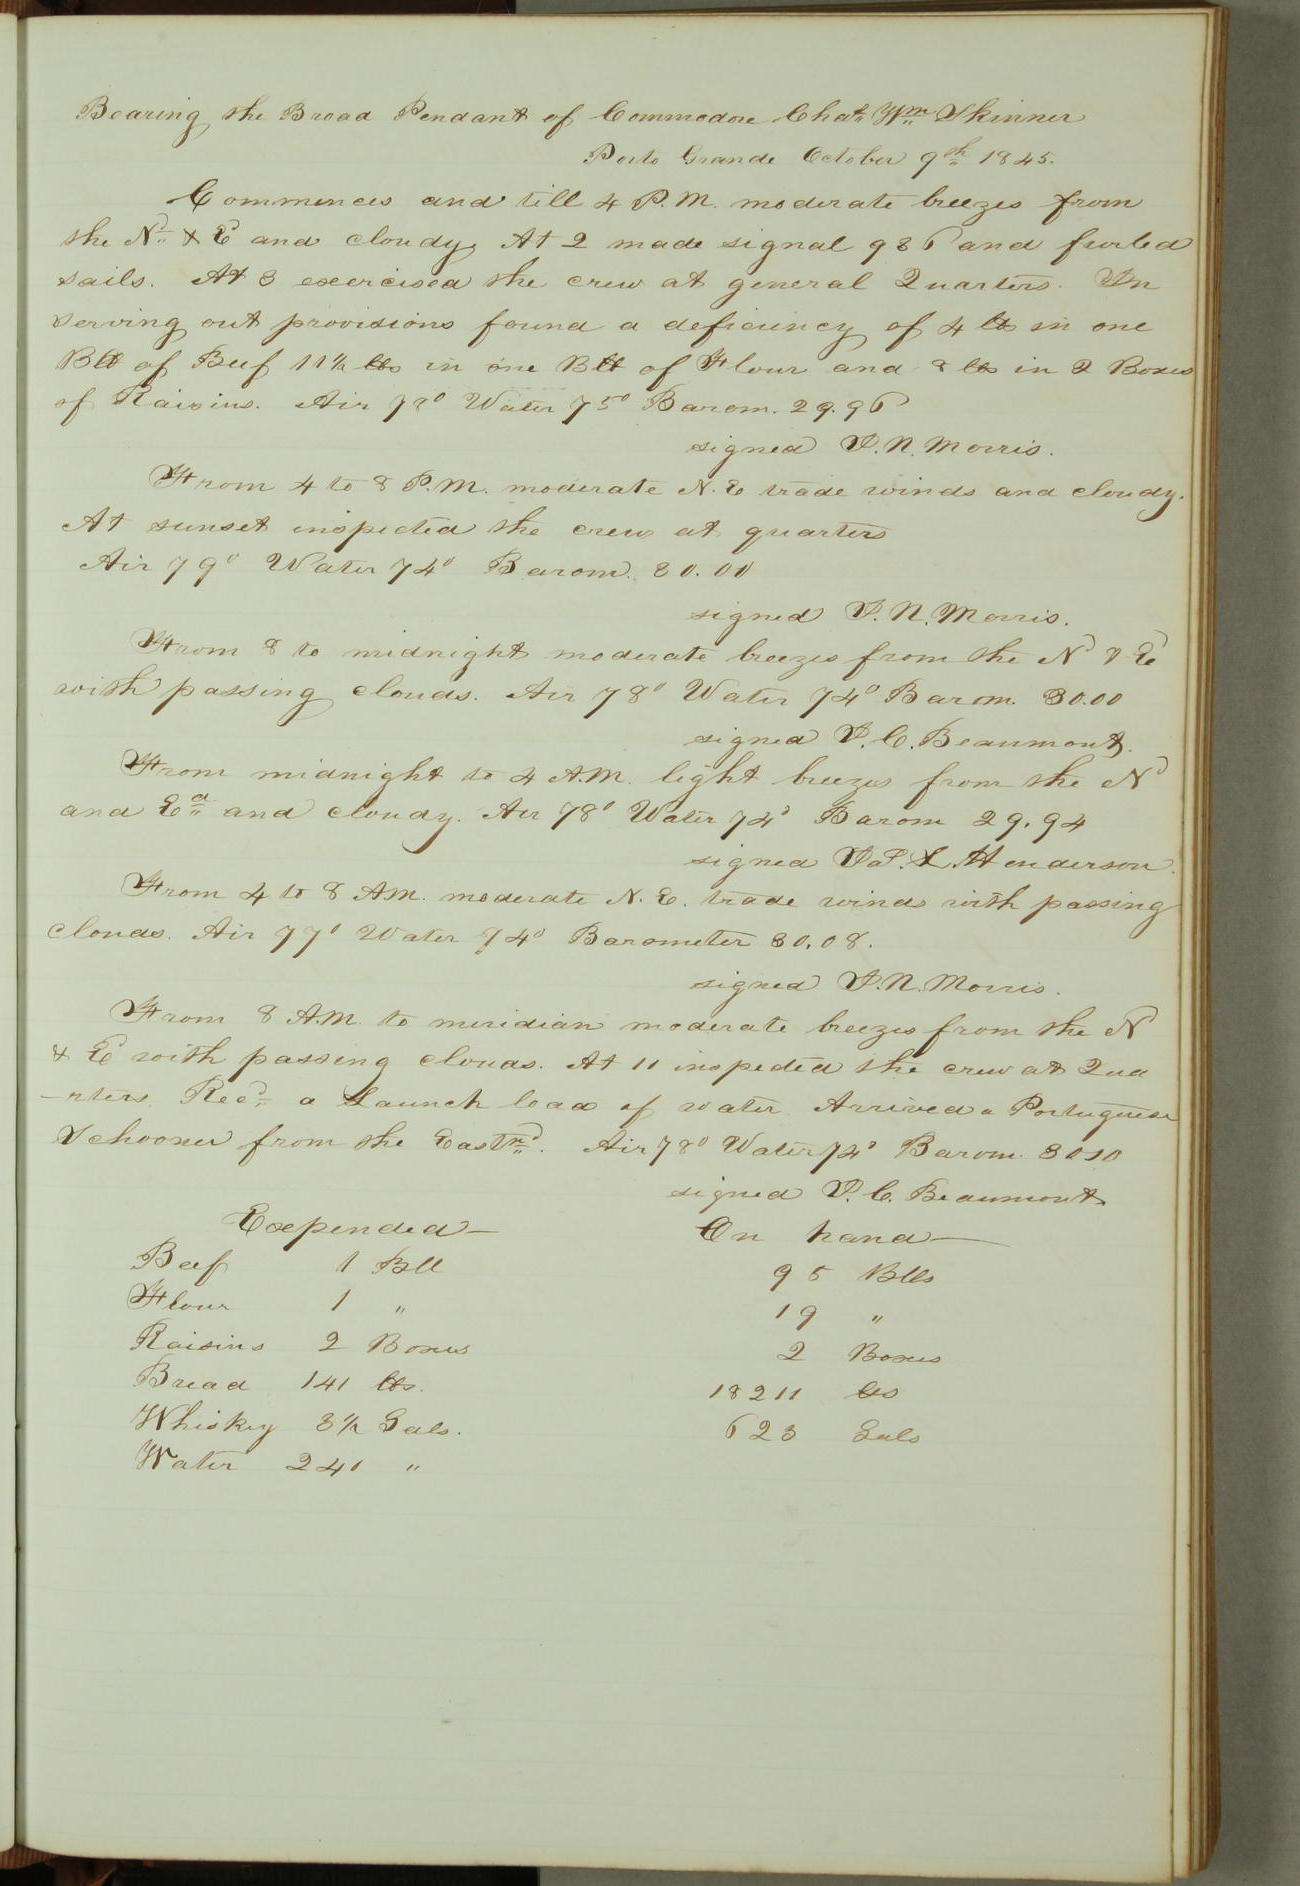 Bearing the Broad Pendant of Commodore Chas Wm Skinner
Porto Grande October 9th 1845.
Commences and till 4 P.M. moderate breezes from
the Nd & E and cloudy. At 2 made signal 936 and furled
sails. At 3 exercised the crew at general Quarters. In
serving out provisions found a deficiency of 4 lbs in one
Bll of Beef 11½ lbs in one Bll of Flour and 8 lbs in 2 Boxes
of Raisins. Air 78° Water 75° Barom. 29.96
signed I.N. Morris.
From 4 to 8 P.M. moderate N.E trade winds and cloudy.
At sunset inspected the crew at quarters
Air 79° Water 74° Barom. 30.00
signed I.N. Morris.
From 8 to midnight moderate breezes from the Nd & E
with passing clouds. Air 78° Water 74° Barom. 30.00
signed I.C. Beaumont.
From midnight to 4 A.M. light breezes from the Nd
and Ed and cloudy. Air 78° Water 74° Barom 29.94
signed Henderson.
From 4 to 8 AM. moderate N.E. trade winds with passing
clouds. Air 77° Water 74° Barometer 30.08.
signed I.N. Morris.
From 8 A.M. to meridian moderate breezes from the N
& E with passing clouds. At 11 inspected the crew at Qua
-rters. Recd a Launch load of water Arrived a Portuguese
Schooner from the Eastrd. Air 78° Water 74° Barom. 3010
signed I.C. Beaumont.
Expended— On hand—
Beef 1 Bll 95 Blls
Flour 1 " 19 "
Raisins 2 Boxes 2 Boxes
Bread 141 lbs. 18211 lbs
Whiskey 8½ Gals. 623 Gals
Water 241 "